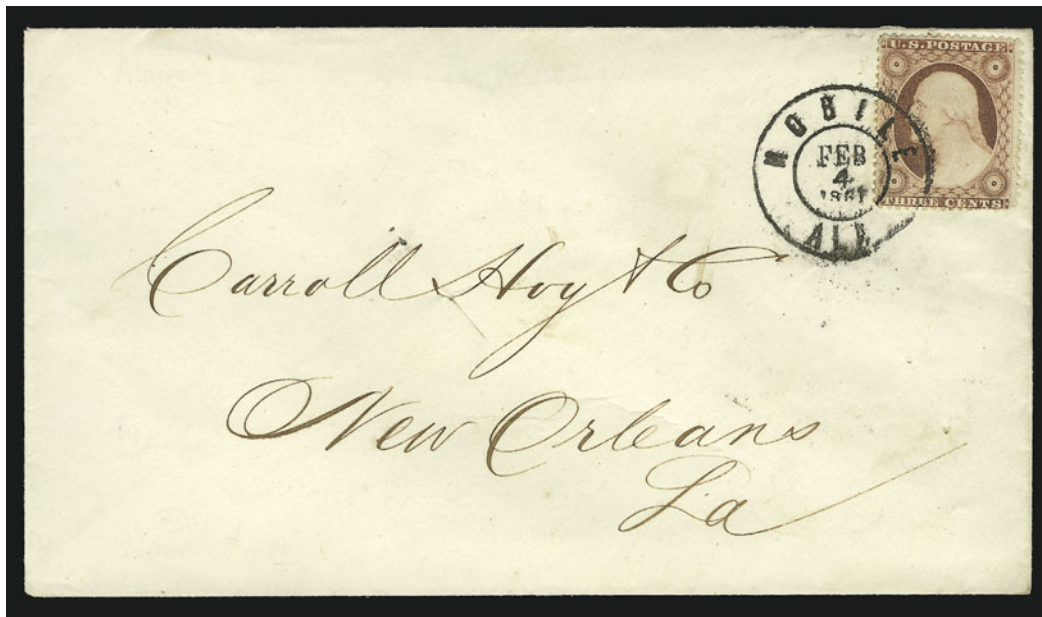 U.S. POSTAGE
THREE CENTS
MOBILE
FEB
4
1861
ALA
Carroll Hoy & Co
New Orleans
La